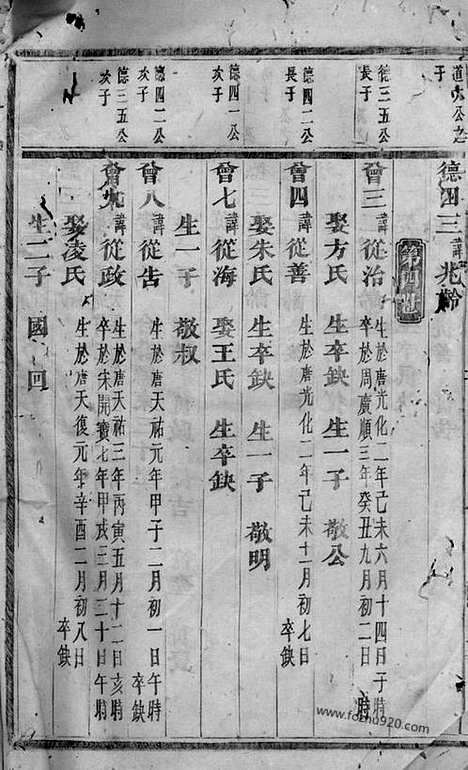 道六公之
子
德四三 諱 兆齡
第九世
德三五公
長子
曾三 諱 從治 生於唐光化二年己未六月十四日子時
卒於周廣順三年癸丑九月初二日
娶方氏 生卒缺 生一子 敬公
德四二公
長子
曾四 諱 從善 生於唐光化二年己未十一月初七日
卒缺
娶朱氏 生卒缺 生一子 敬明
德四一公
次子
曾七 諱 從海 娶王氏 生卒缺
生一子 敬叔
德四二公
次子
曾八 諱 從吉 生於唐天祐元年甲子二月初一日午時
卒缺
德三五公
次子
曾九 諱 從政 生於唐天祐三年丙寅五月十二日亥時
卒於宋開寶七年甲戌三月二十日午時
娶凌氏 生於唐天復元年辛酉二月初八日
卒缺
生二子 國 回
www.fozhu920.com